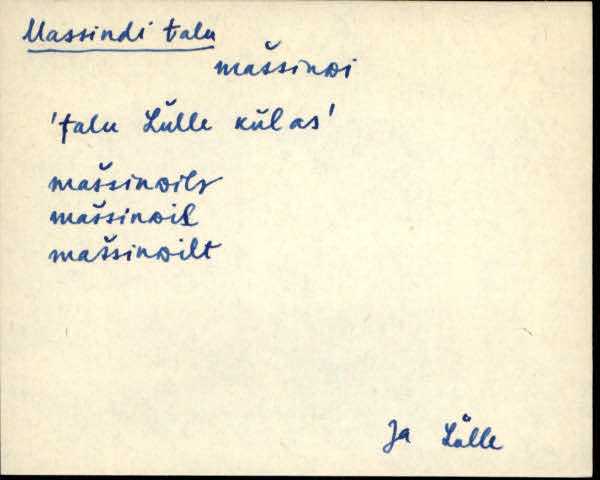 Massindi talu
maššinᴅi
'talu Lülle külas'
maššinᴅilᴇ
maššinᴅil
maššinᴅilt
Ja Lülle